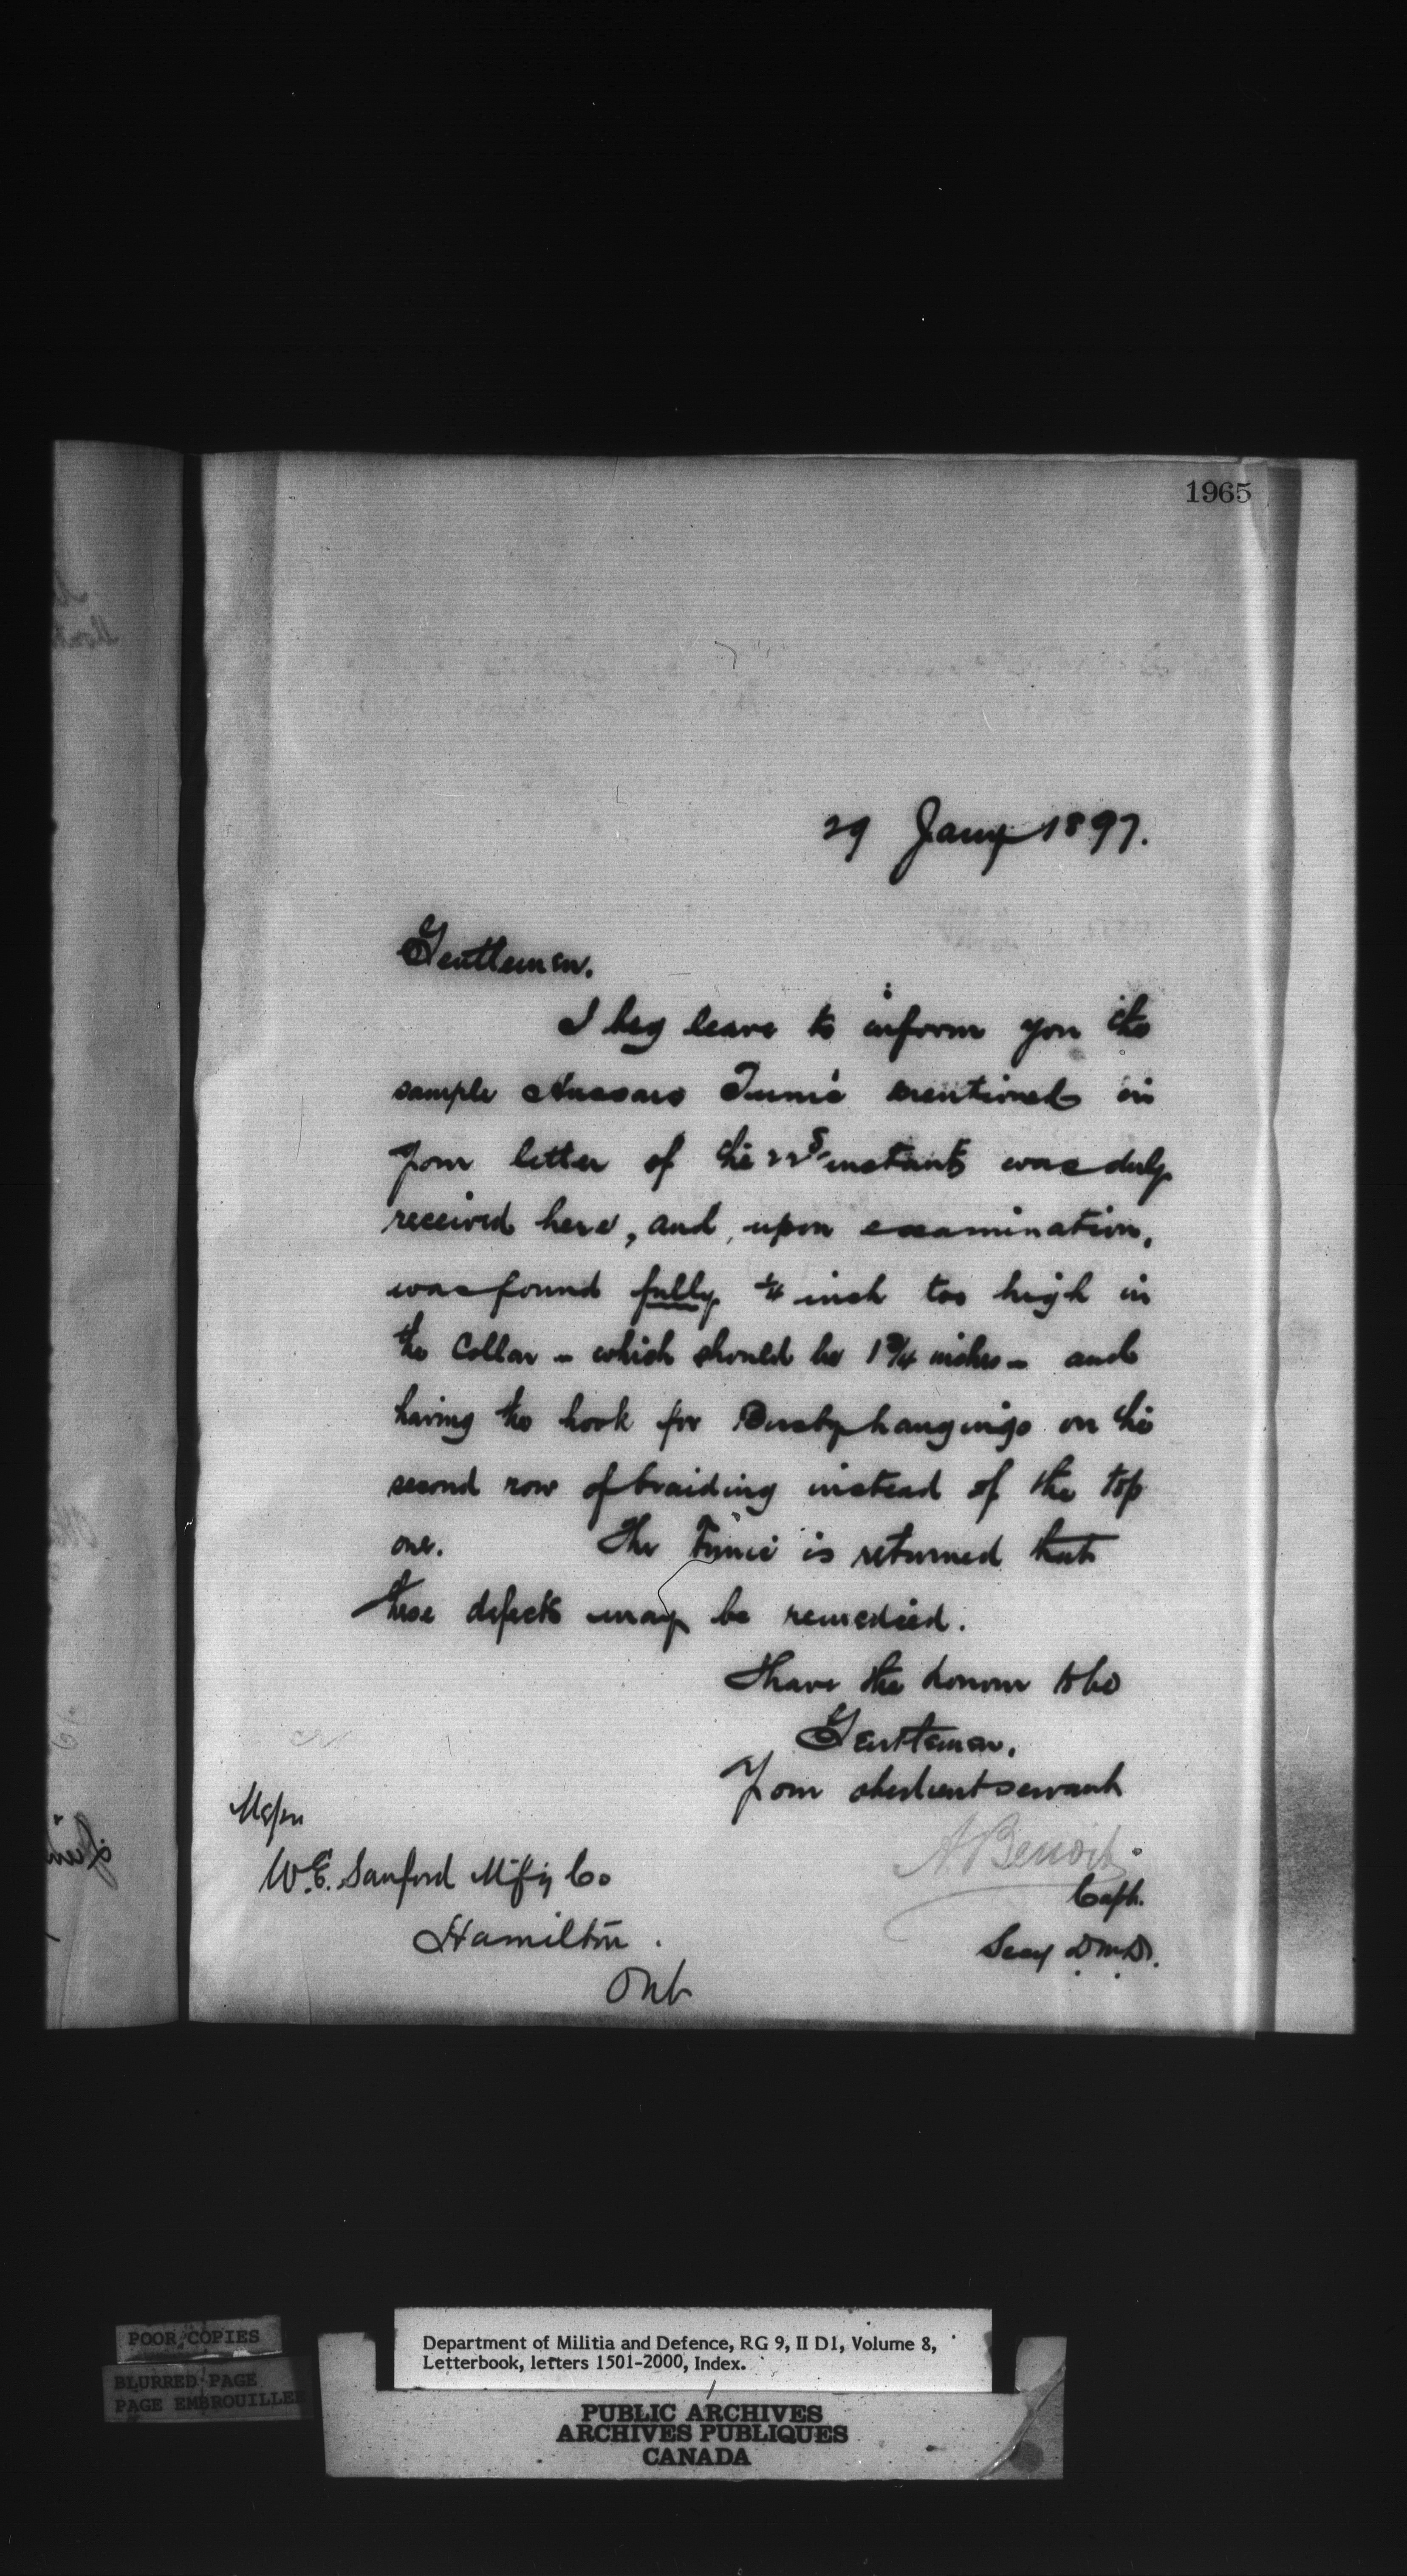 1965
29 Jany 1897.
Gentlemen.
I beg leave to inform you the
sample Hussars Tunic mentioned in
your letter of the 22d instant was duly
received here, and, upon examination,
was found fully 1/4 inch too high in
the Collar - which should be 1 3/4 inches - and
having the hook for Busby hangings on the
second row of braiding instead of the top
one. The Tunic is returned that
these defects may be remedied.
I have the honour to be
Gentlemen,
Your obedient servant
A Benoit
Capt.
Secy D.M.D.
Messrs
W.E. Sanford M'f'g Co
Hamilton.
Ont
POOR COPIES
BLURRED PAGE
PAGE EMBROUILLEE
Department of Militia and Defence, RG 9, II D1, Volume 8,
Letterbook, letters 1501-2000, Index.
PUBLIC ARCHIVES
ARCHIVES PUBLIQUES
CANADA